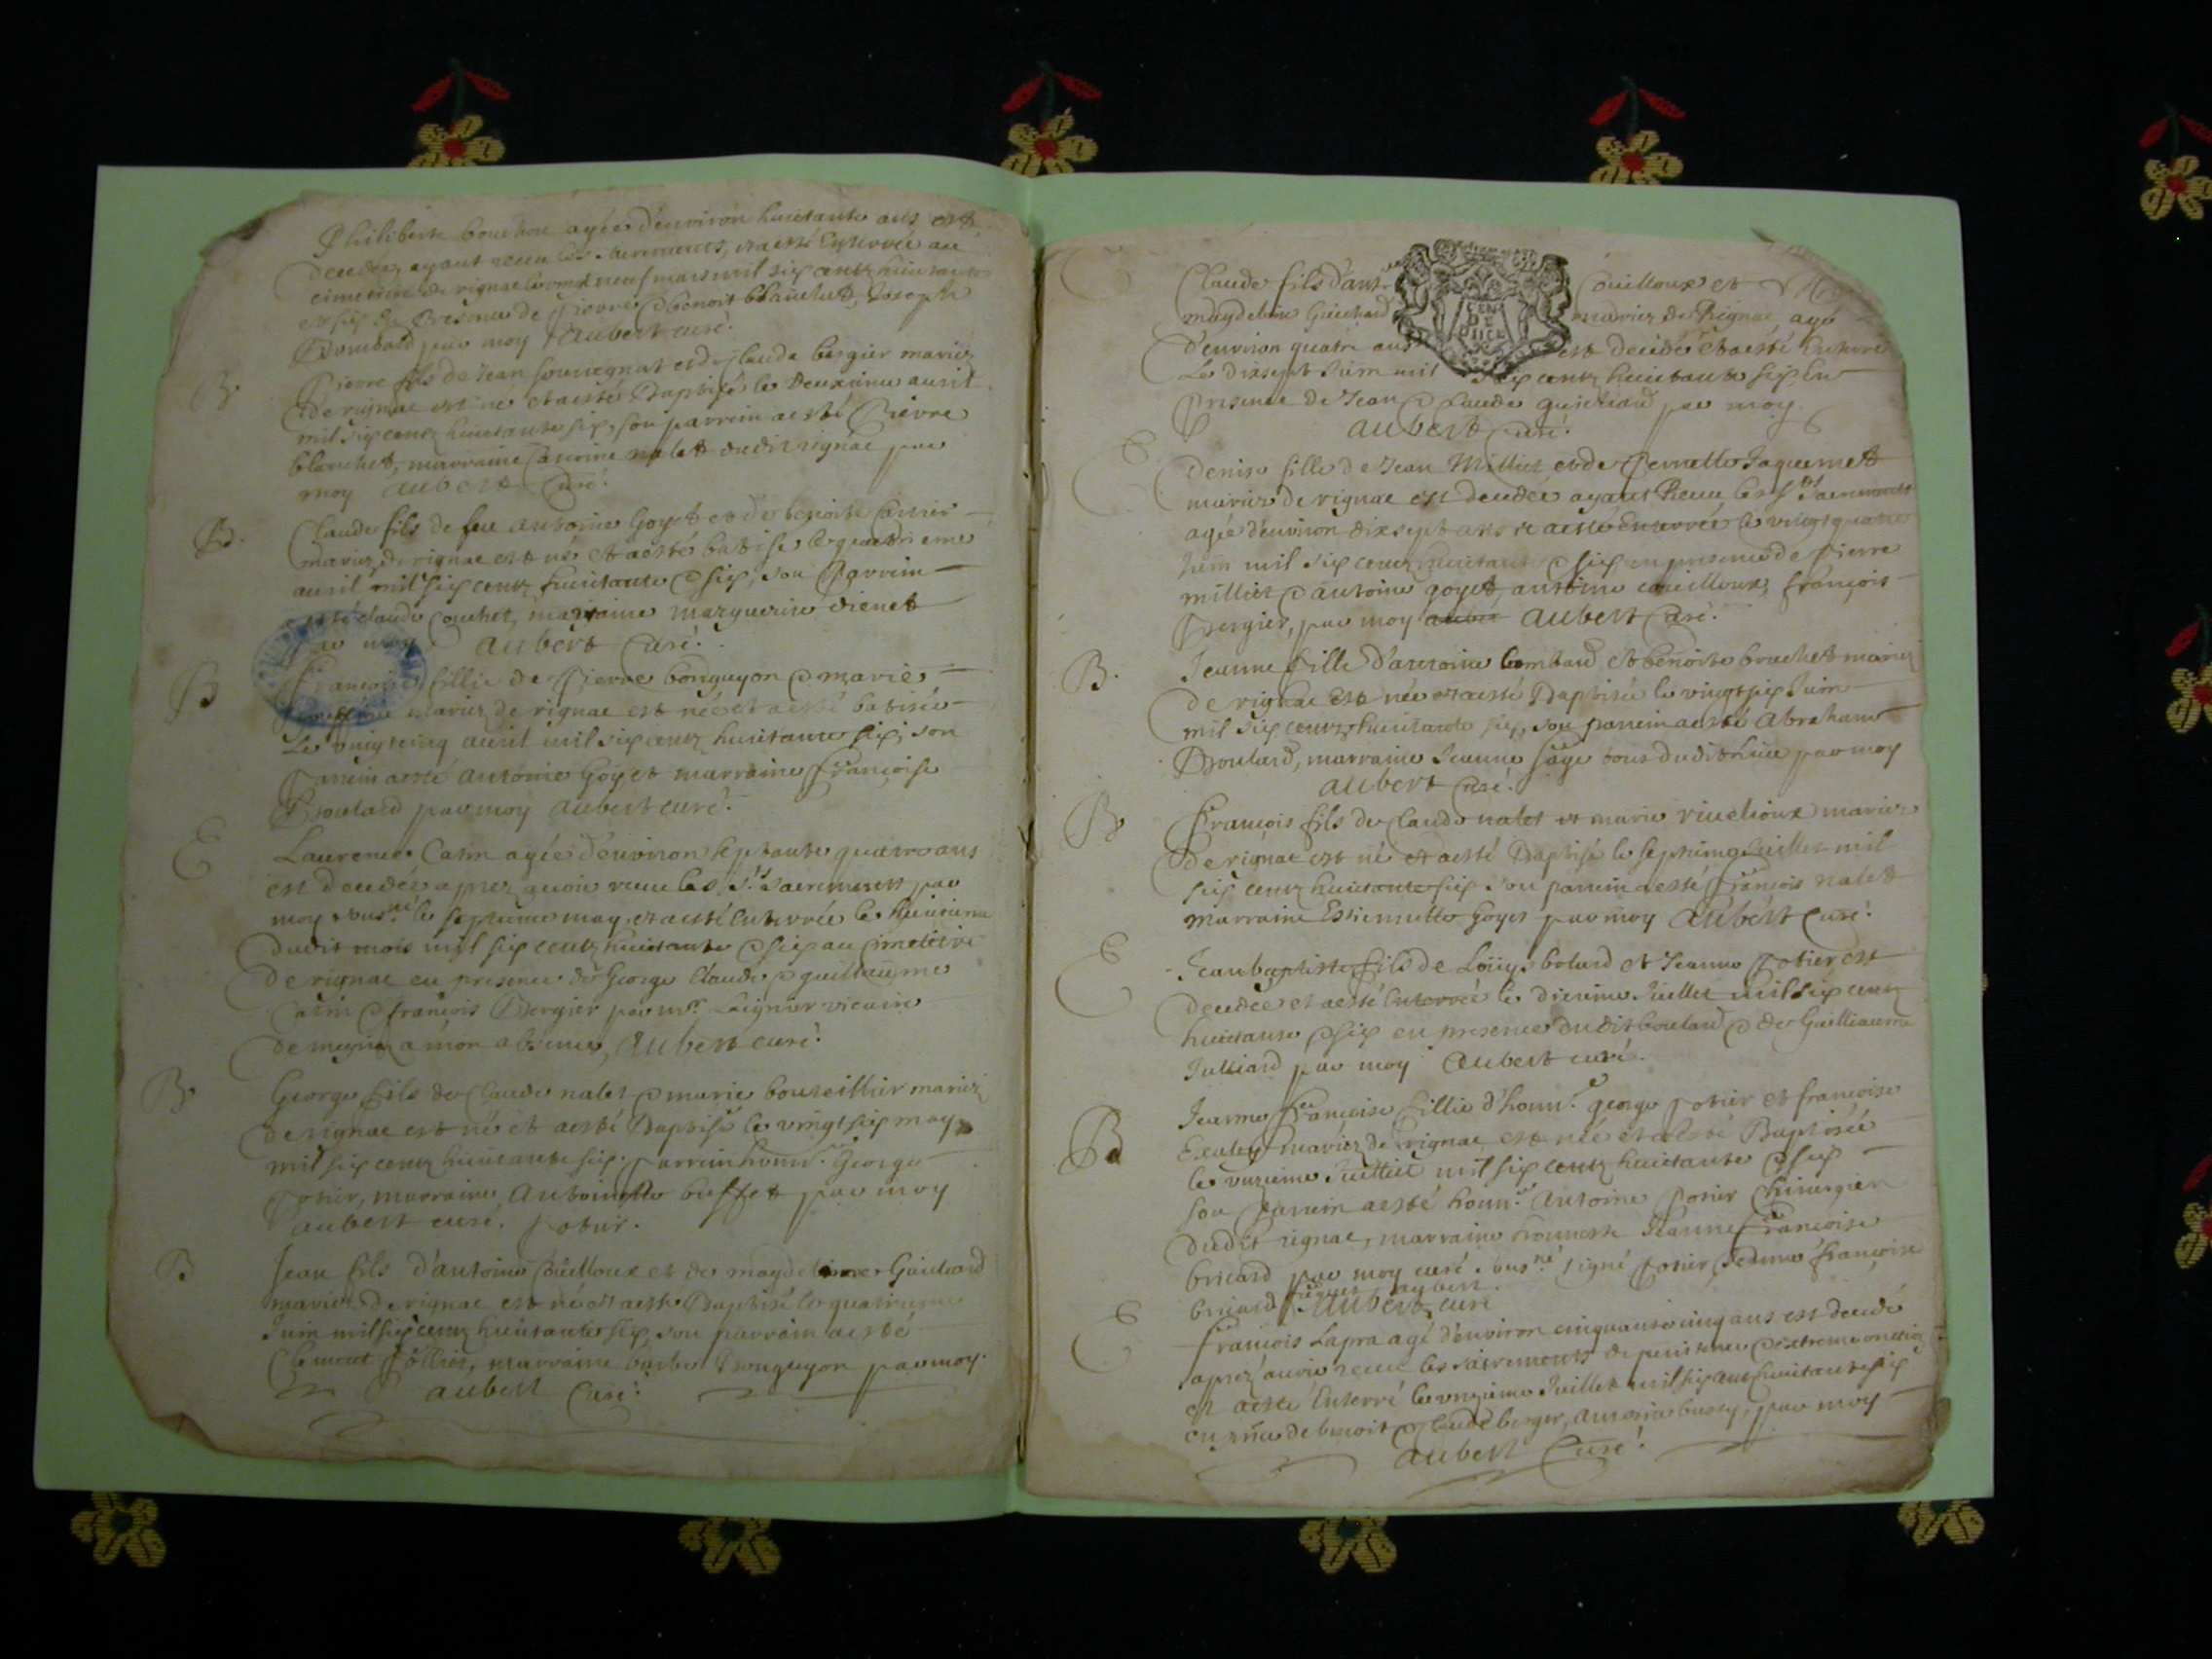 Philiberte bouchon agée d'environ huictante ans est
decedée ayant receu les sacrements, et a esté enterrée au
cimetiere de rignac le vingt neuf mars mil six centz huictante
et six en presence de Pierre & benoit blanchet, Joseph
par moy Aubert curé.
B.
Pierre fils de Jean et de Clauda bergier mariez
de rignac est né et a esté Baptisé le deuxieme avril
mil six centz huictante six, son parrein a esté Pierre
blanchet, marraine nalet dudit rignac par
moy Aubert Curé.
B.
Claude fils de feu antoine Goyet et de benoite
mariez de rignac est né et a esté batisé le quatrieme
avril mil six centz huictante & six, son Parrein
a esté claude marraine marguerite
par moy Aubert Curé.
B
Françoise fillie de Pierre bonguyon & marie
mariez de rignac est née et a esté batisée
Le vingtcinq avril mil six centz huictante six, son
Parrein a esté antoine Goyet marraine Françoise
par moy Aubert curé.
E
Laurence Catin agée d'environ septante quatre ans
est decedée aprez avoir receu les Sts Sacrements par
moy sousné le septieme may et a esté enterrée le huictieme
dudit mois mil six centz huictante & six au Cimetiere
de rignac en presence de George Claude & guillaume
Catin & françois Bergier par mr. vicaire
a mon absence, Aubert curé.
B
George fils de Claude nalet & marie bouteillier mariez
de rignac est né et a esté Baptisé le vingtsix may
mil six centz huictante six. parrein honn. George
Potier, marraine Antoinette buffet par moy
aubert curé. potier.
B
Jean fils d'antoine Cuilloux et de magdeleine Guichard
mariez de rignac est né et a esté Baptisé le quatrieme
Juin mil six centz huictante six, son parrein a esté
Clement marraine bonguyon par moy.
aubert Curé.
E
Claude fils d'ant Couilloux et
magdeleine Guichard mariez de Rignac agé
d'environ quatre ans est decedé et a esté Enterré
Le dixsept Juin mil six centz huictante six En
Presence de Jean & Claude guichard par moy.
aubert Curé.
E
Denise fille de Jean Milliet et de Pernette Jaquemet
mariez de rignac est decedée ayant Receu les Sts Sacrements
agée d'environ dixsept ans et a esté Enterrée le vingtquatre
Juin mil six centz huictante & six en presence de Pierre
milliet & antoine goyet, antoine couilloux, françois
Bergier, par moy aubert Curé.
B.
Jeanne fille d'antoine et benoite brochet mariez
de rignac est née et a esté Baptisée le vingtsix Juin
mil six centz huictante six, son parrein a esté Abraham
marraine Jeanne sage tous dudit Lieu par moy
aubert curé.
B
François fils de Claude nalet et marie mariez
de rignac est né et a esté Baptisé le septieme Juillet mil
six centz huictante six son parrein a esté François nalet
marraine Estiennette Goyet par moy Aubert Curé.
E
Jean baptiste fils de Loüys et Jeanne Potier est
decedé et a esté Enterré le dixieme Juillet mil six centz
huictante & six en presence dudit & de Guilliaume
Julliard par moy Aubert curé.
B
Jeanne Françoise fillie d'honn. george potier et françoise
mariez de rignac est née et a esté Baptisée
le unzieme Juillet mil six centz huictante & six
son Parrein a esté honn. Antoine Potier Chirurgien
dudit rignac, marraine honneste Jeanne Françoise
bricard par moy curé sousné signé Potier, Jeanne françoise
bricard
Aubert, curé
E
François Lapra agé d'environ cinquante cinq ans est decedé
aprez avoir receu les sacrements de penitence & extreme onction
et a esté Enterré le unzieme Juillet mil six cent huictante six
de benoit & Claude berger, antoine par moy
aubert Curé.